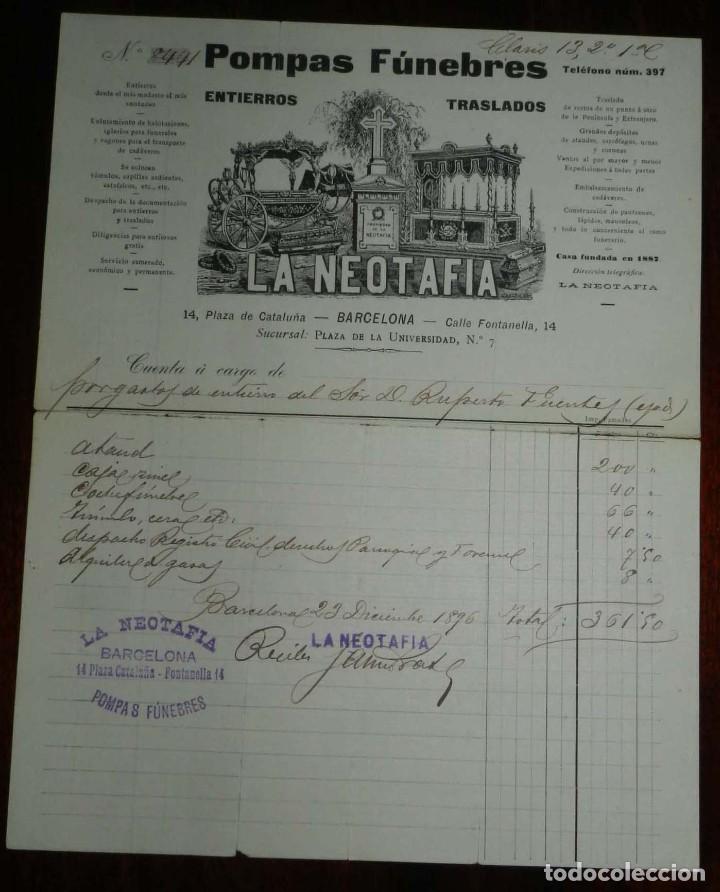 Nº 8491 Pompas Fúnebres Claris 13, 2º 1ª
Teléfono núm. 397
ENTIERROS TRASLADOS
Entierros
desde el más modesto al más
suntuoso
Enlutamiento de habitaciones,
iglesias para funerales
y vagones para el transporte
de cadáveres
Se colocan
túmulos, capillas ardientes,
catafalcos, etc., etc.
Despacho de la documentación
para entierros
y traslados
Diligencias para entierros
gratis
Servicio esmerado,
económico y permanente.
Traslado
de restos de un punto á otro
de la Península y Extranjero.
Grandes depósitos
de ataudes, sarcófagos, urnas
y coronas
Ventas al por mayor y menor
Expediciones á todas partes
Embalsamamiento de
cadáveres.
Construcción de panteones,
lápidas, mausoleos,
y todo lo concerniente al ramo
funerario.
Casa fundada en 1887
Dirección telegráfica:
LA NEOTAFIA
PROPIEDAD
DE LA
NEOTAFIA
LA NEOTAFIA
14, Plaza de Cataluña — BARCELONA — Calle Fontanella, 14
Sucursal: PLAZA DE LA UNIVERSIDAD, N.º 7
Cuenta á cargo de
por gastos de entierro del Sor. D. Ruperto Fuentes
ataud 200 "
Caja zinc 40 "
Coche fúnebre 66 "
Túmulo, cera, etc. 40 "
despacho Registro Civil, derechos Parroquia y Forense 7'50
alquiler de gasas 8 "
Barcelona 23 Diciembre 1896 Total: 361'50
Recibí
LA NEOTAFIA
LA NEOTAFIA
BARCELONA
14 Plaza Cataluña - Fontanella 14
POMPAS FÚNEBRES
todocoleccion